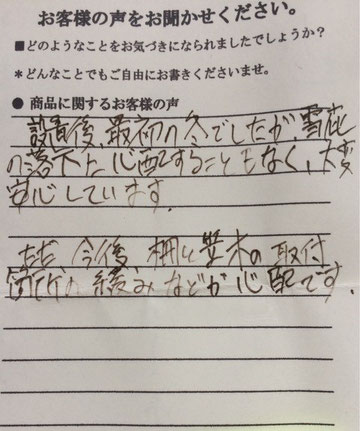 お客様の声をお聞かせください。
■どのようなことをお気づきになられましたでしょうか?
*どんなことでもご自由にお書きくださいませ。
● 商品に関するお客様の声
設置後、最初の冬でしたが、雪庇
の落下を心配することもなく、大変
安心しています。
ただ、今後 柵と笠木の取付
箇所の緩みなどが心配です。